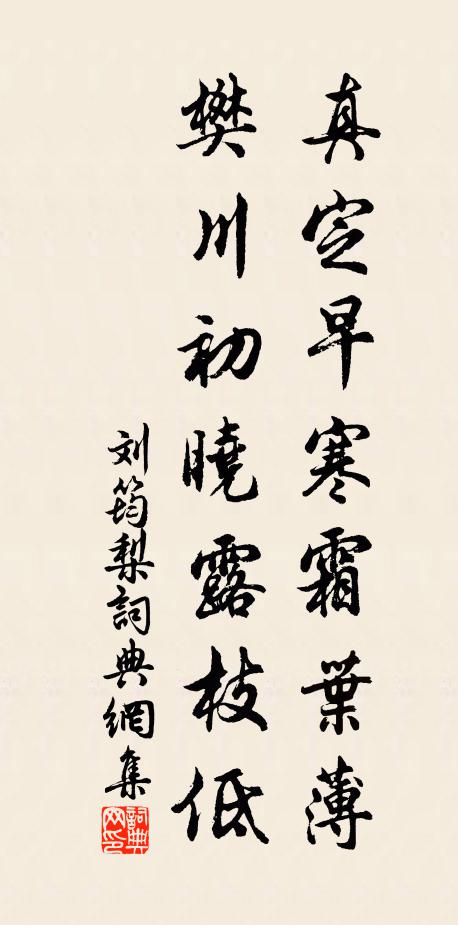 真定早寒霜葉薄
樊川初曉露枝低
刘筠梨詞典網集
詞典网印